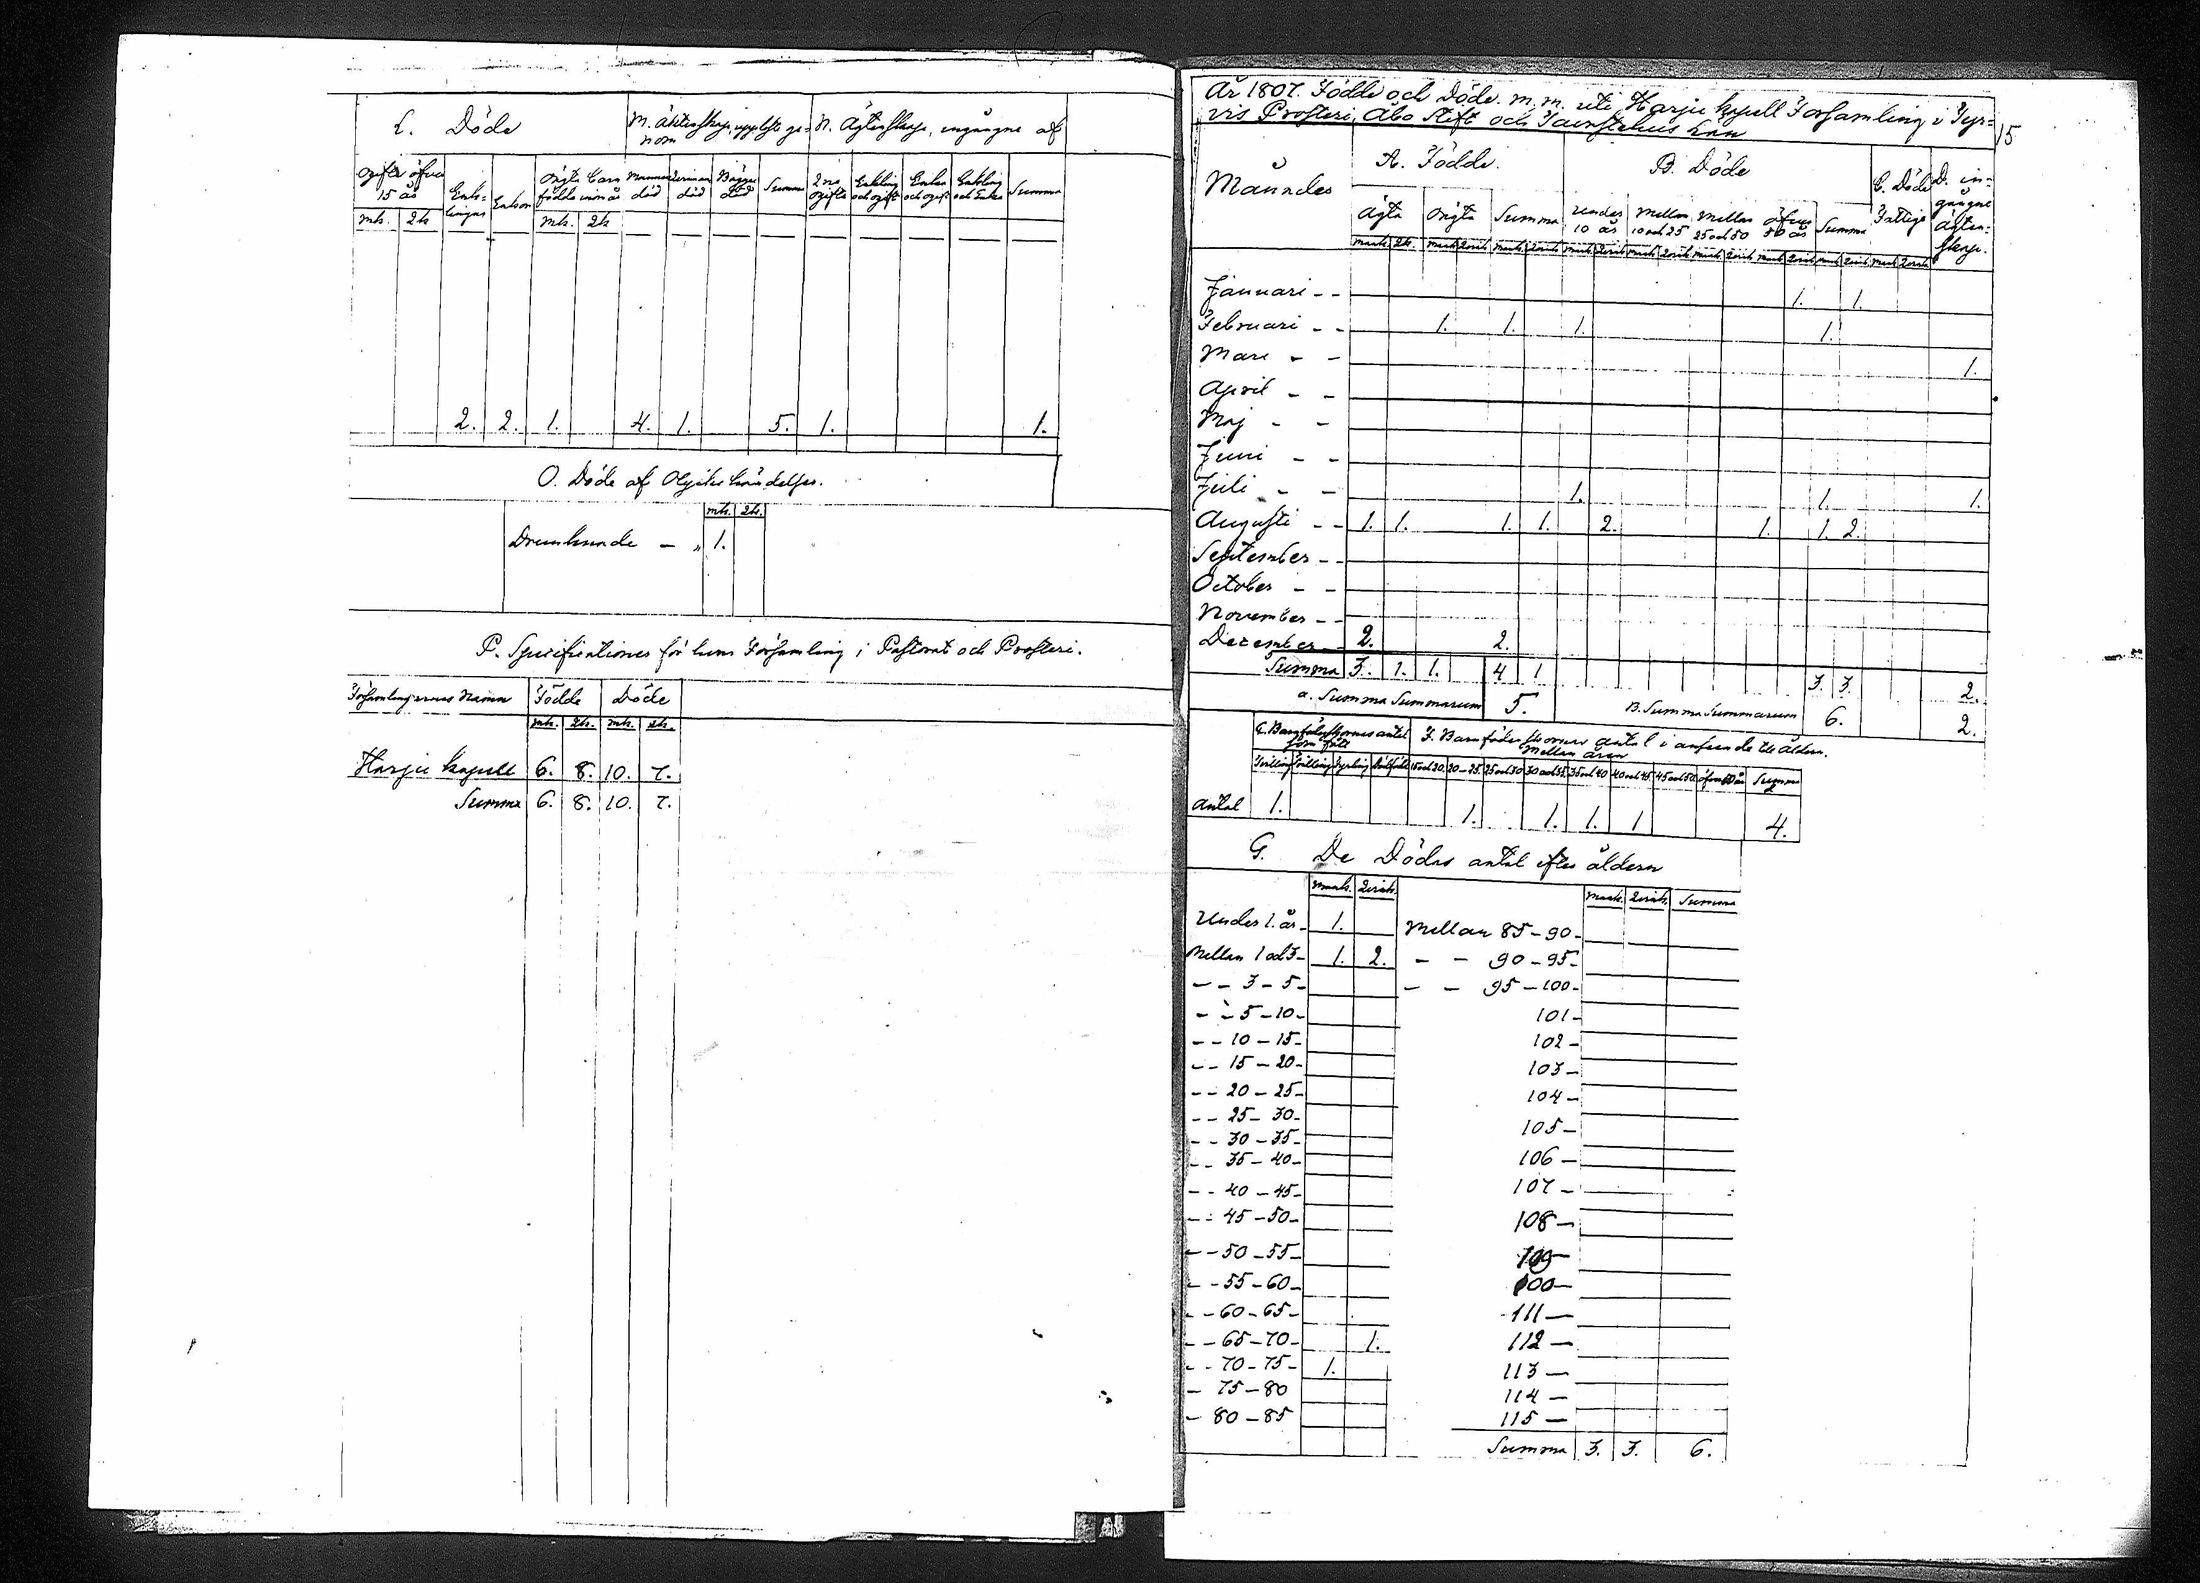 L. Döde
M. Äktenskap, upplöste ge=
nom
N. Ägtenskap, ingångne af
Ogifte öfver
15 år
Enk-
lingar
Enkor
Oägta Barn
födde inom år
Mannens
död
Qvinnans
död
Bägges
död
Summa
2ne
ogifte
Enkling
och ogift
Enka
och ogift
Enkling
och Enka
Summa
mk. 2k mk. 2k
2. 2. 1. 4. 1. 5. 1. 1.
O. Döde af Olyckshändelser.
mk. 2k.
Drunknade - " 1.
P. Specificationer för hvar Församling i Pastorat och Prosteri.
Församlingarnes Namn Födde Döde
mk. 2k. mk. 2k.
Harju kapell 6. 8. 10. 7.
Summa 6. 8. 10. 7.
År 1807. Födde och Döde m. m. uti Harju kapell Församling i Tyr=
vis Prosteri, Åbo Stift och Tavastehus Län
15
Månader
A. Födde.
B. Döde
C. Döde
Fattige
D. in=
gångne
Ägten=
skap.
Ägta Oägta Summa
Under
10 år
Mellan
10 och 25
Mellan
25 och 50
öfver
50 år
Summa
Januari - - 1. 1.
Februari - - 1. 1. 1. 1.
Mars - - 1.
April - -
Maj - -
Juni - -
Juli - - 1. 1. 1.
Augusti - - 1. 1. 1. 1. 2. 1. 1. 2.
September - -
October - -
November - -
December 2. 2.
Summa 3. 1. 1. 4 1. 3. 3. 2.
a. Summa Summarum 5. B. Summa Summarum 6. 2.
E. Barnföderskornes antal
som födt
F. Barnföderskornes antal i anseende till åldern.
Mellan åren
Tvilling Trilling Fyrling Dödfödt 15 och 20. 20-25. 25 och 30 30 och 35. 35 och 40 40 och 45. 45 och 50. öfver 50 år Summa
Antal 1. 1. 1. 1. 1 4.
G. De Dödas antal efter åldern
mank. 2vink. mank. 2vink. Summa
Under 1. år - 1. Mellan 85-90-
Mellan 1 och 3- 1. 2. - - 90-95-
- - 3-5- - - 95-100-
- - 5-10- 101-
- - 10-15- 102-
- - 15-20- 103-
- - 20-25- 104-
- - 25-30- 105-
- - 30-35-
- - 35-40- 106-
- - 40-45- 107-
- - 45-50- 108-
- - 50-55- 109-
- - 55-60- 100-
- - 60-65- 111-
- - 65-70- 1. 112-
- - 70-75- 1. 113-
- 75-80 114-
- 80-85 115-
Summa 3. 3. 6.